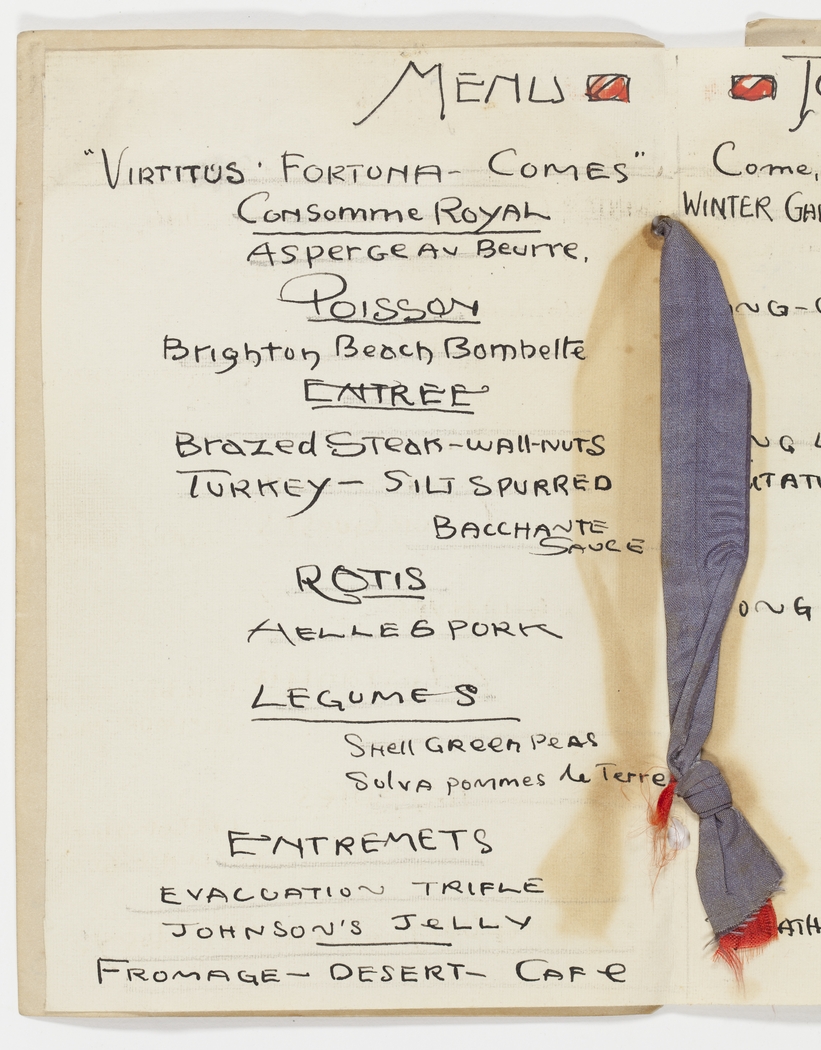 MENU
"VIRTITUS · FORTUNA - COMES"
Consomme ROYAL
Asperge Au Beurre,
POISSON
Brighton Beach Bombelte
ENTREE
Brazed STeak - WAll-NUTS
TURKEY - SILT SPURRED
BACCHANTE
SAUCE
ROTIS
AELLEG PORK
LEGUMES
SHell GReen PeAS
Sulva pommes de Terre
ENTREMETS
EVACUATION TRIFLE
JOHNSON'S JeLLY
FROMAGE - DESERT - CAFe
Come,
WINTER